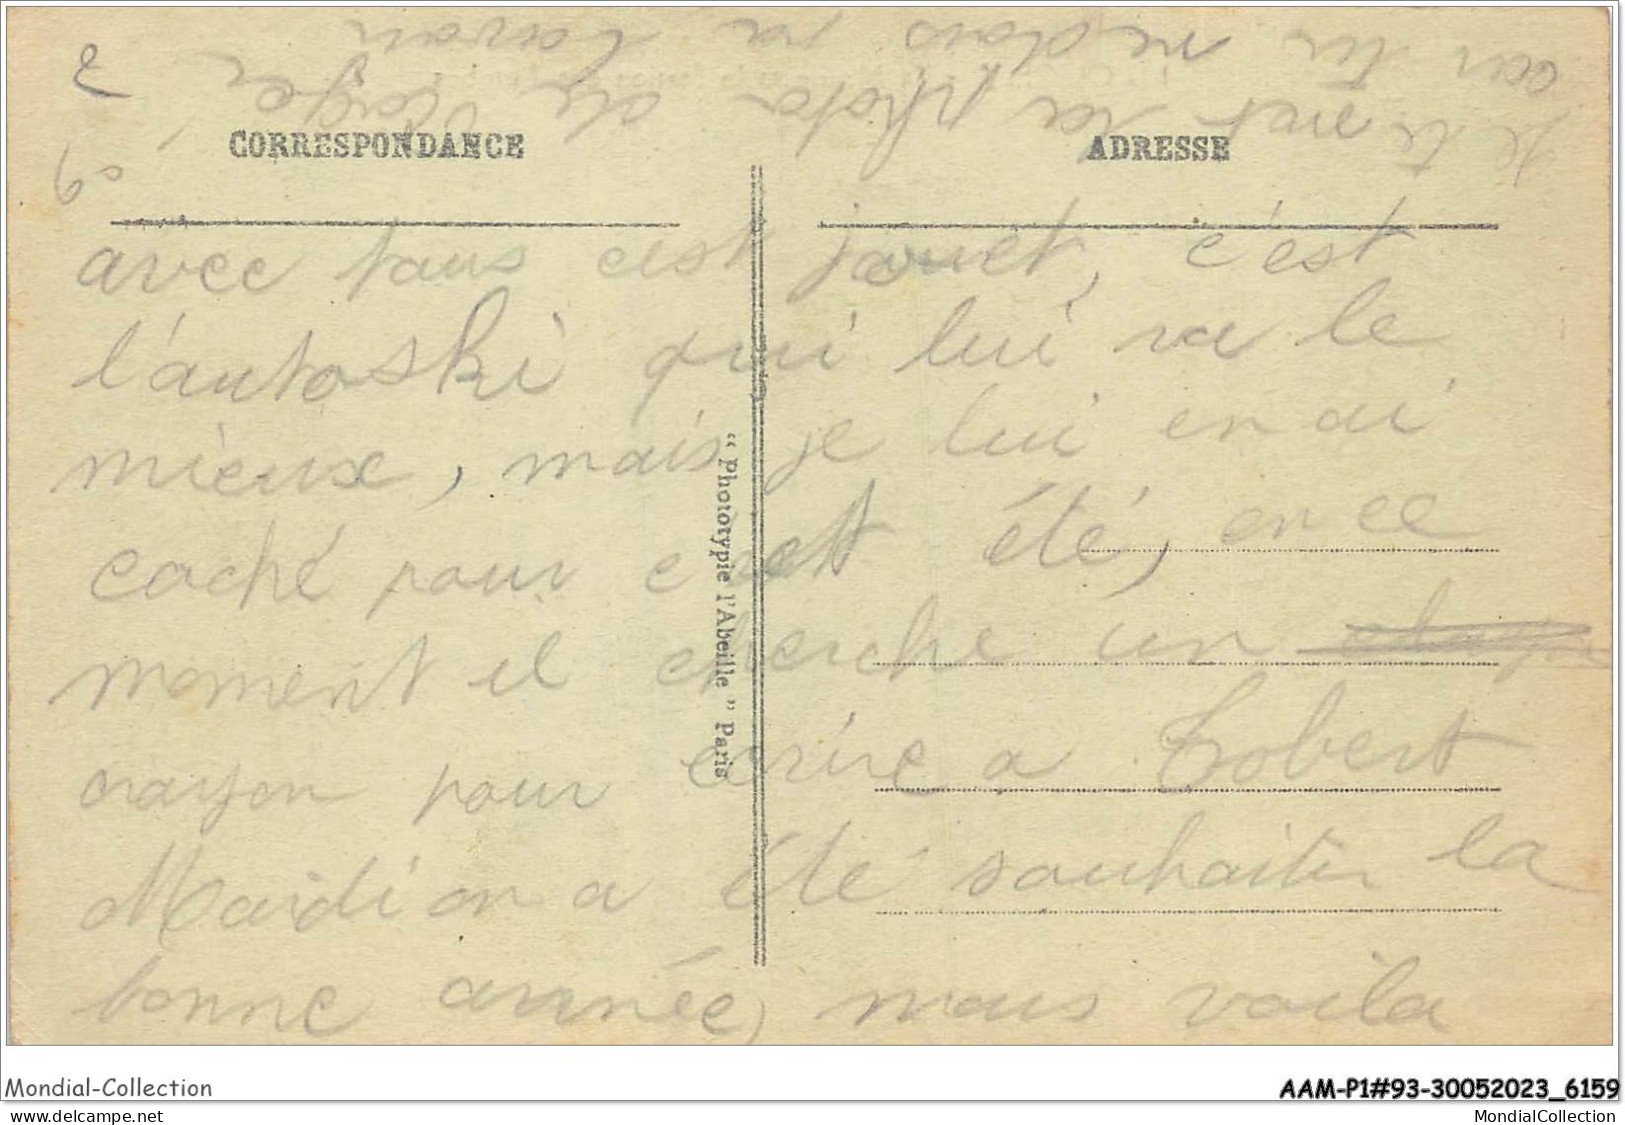 je te met la photo de Roger
car tu me dois la
CORRESPONDANCE
ADRESSE
avec tous cest jouet, c'est
l'autoski qui lui va le
mieux, mais je lui en ai
caché pour cet été, en ce
moment il cherche un
crayon pour ecrire a Robert
Mardi on a été souhaiter la
bonne année, mais voila
“ Phototypie l'Abeille ” Paris
Mondial-Collection
AAM-P1#93-30052023_6159
www.delcampe.net
MondialCollection